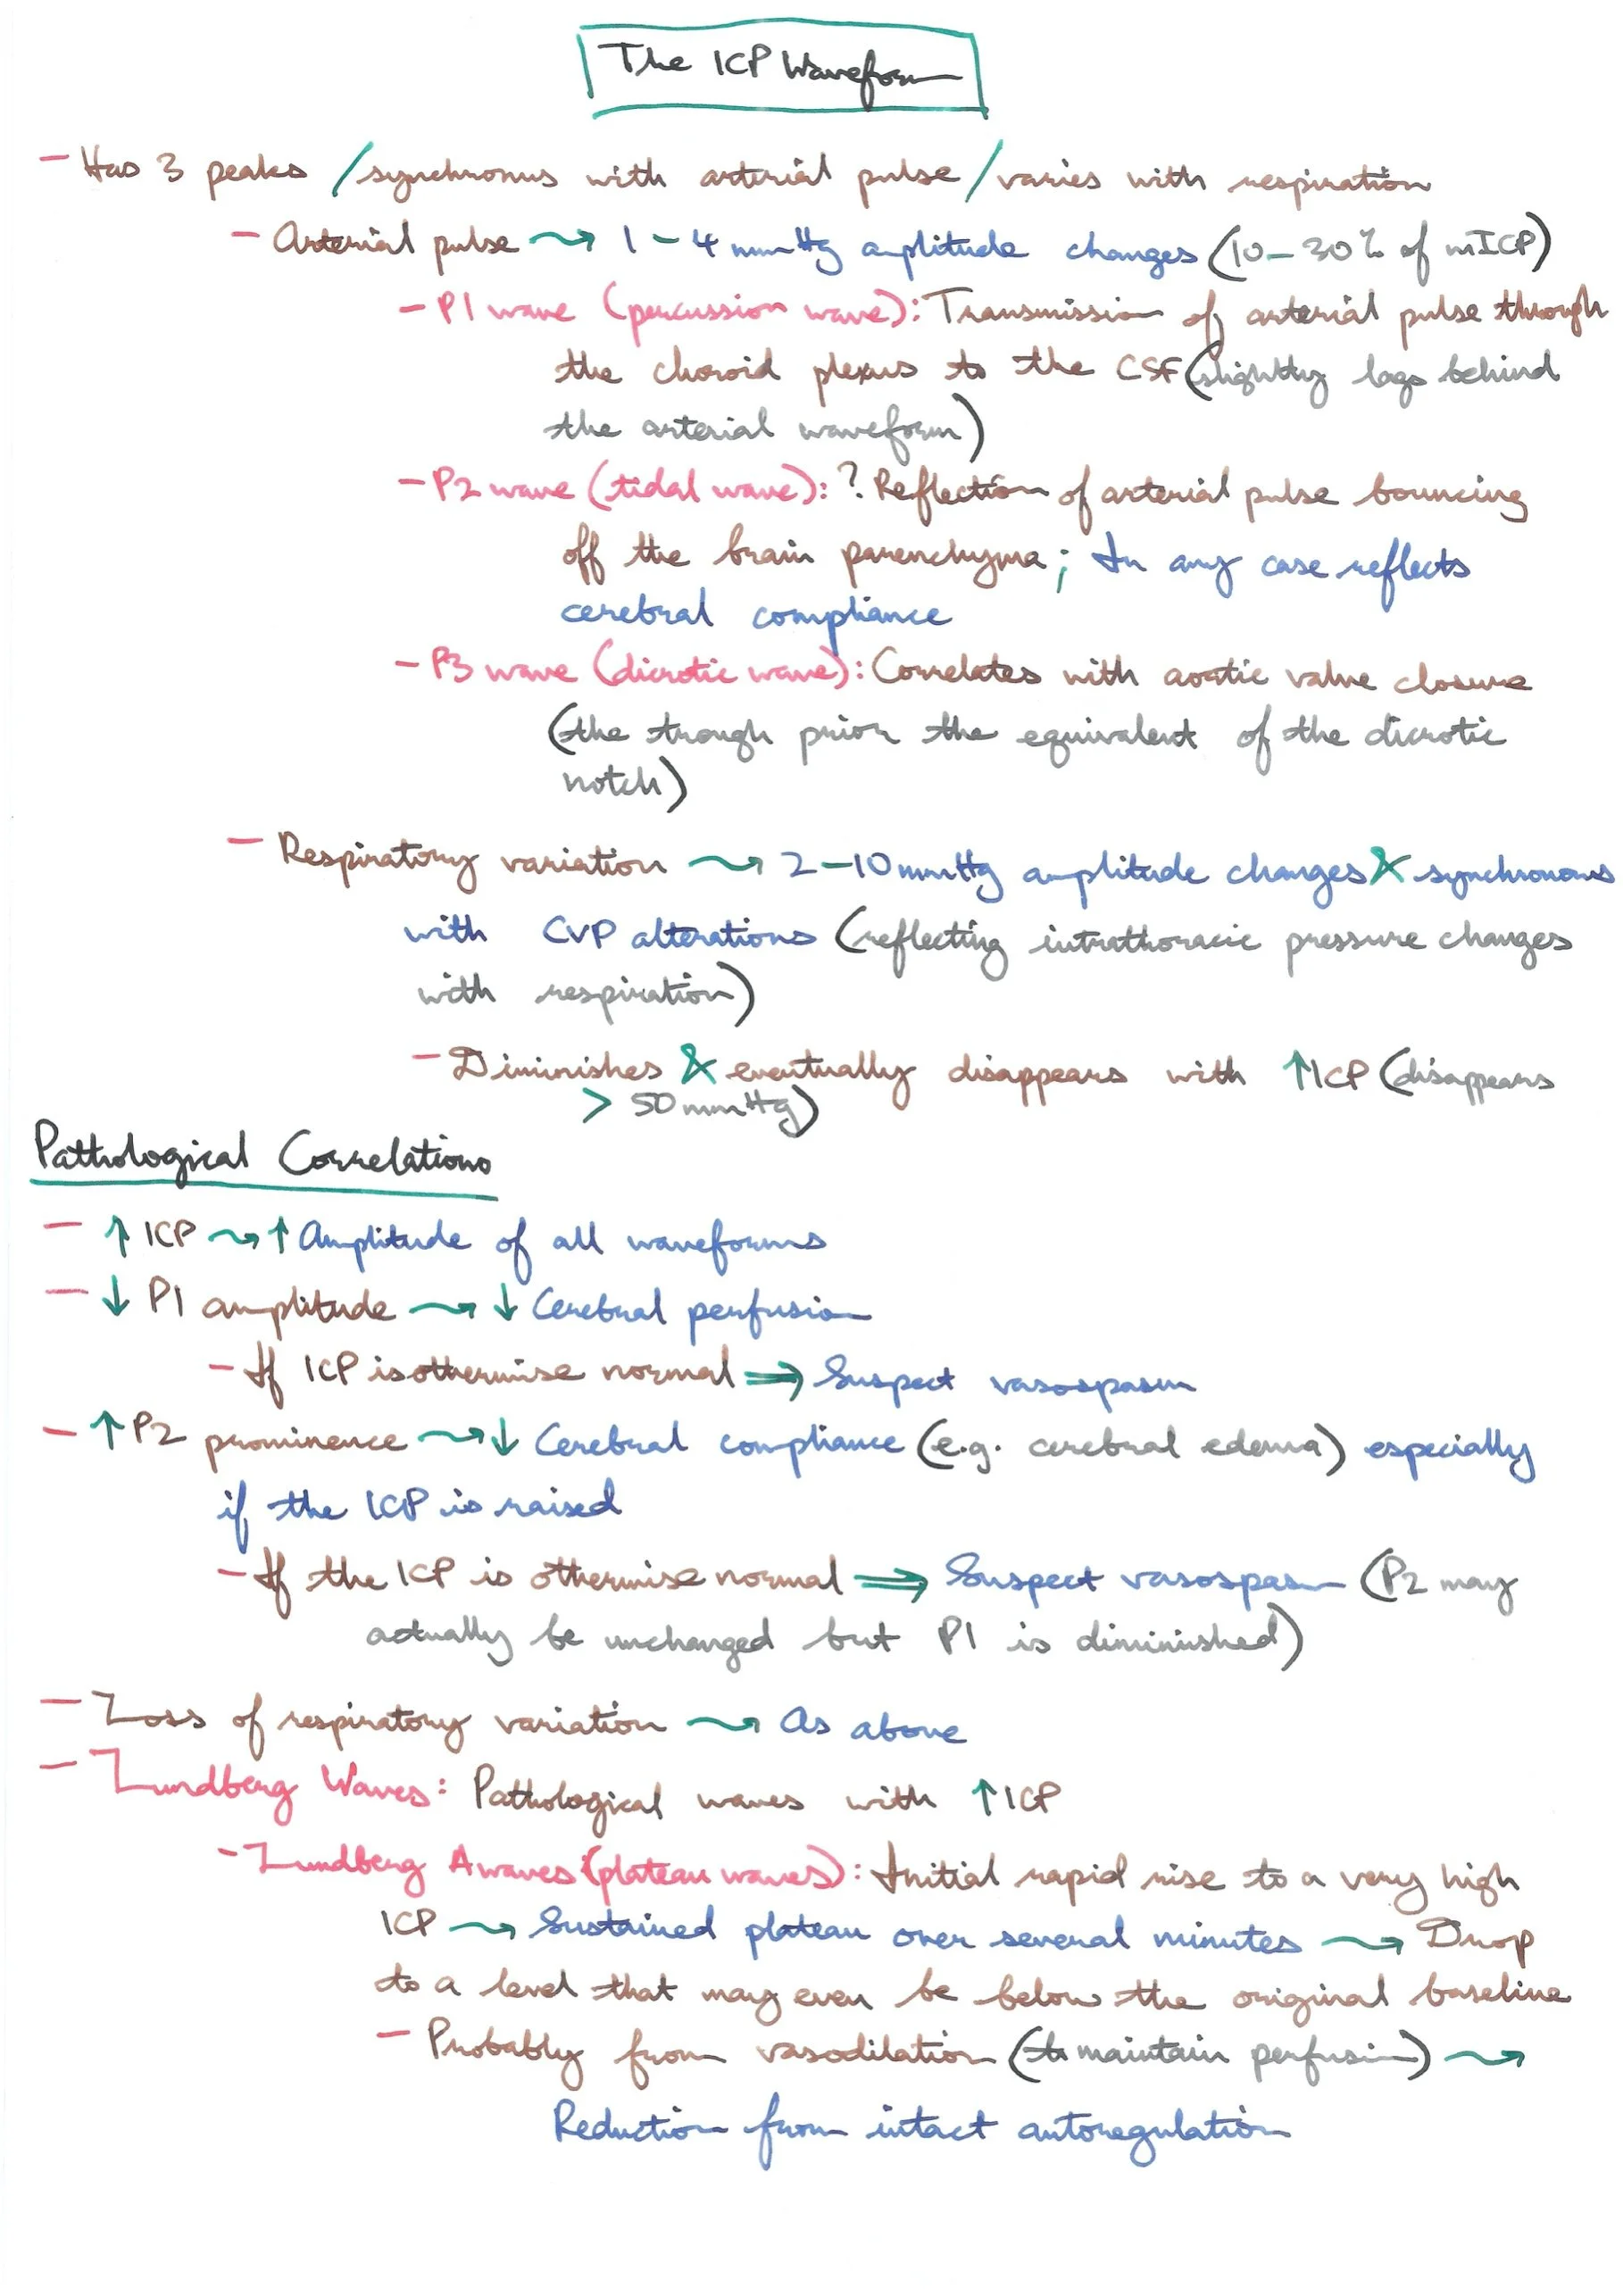 The ICP Waveform
- Has 3 peaks / synchronus with arterial pulse / varies with respiration
- Arterial pulse ⇝ 1-4 mmHg amplitude changes (10-30% of mICP)
- P1 wave (percussion wave): Transmission of arterial pulse through
the choroid plexus to the CSF (slightly lags behind
the arterial waveform)
- P2 wave (tidal wave): ? Reflection of arterial pulse bouncing
off the brain parenchyma; In any case reflects
cerebral compliance
- P3 wave (dicrotic wave): Correlates with aortic valve closure
(the trough prior the equivalent of the dicrotic
notch)
- Respiratory variation ⇝ 2-10mmHg amplitude changes & synchronous
with CVP alterations (reflecting intrathoracic pressure changes
with respiration)
- Diminishes & eventually disappears with ↑ICP (disappears
> 50mmHg)
Pathological Correlations
- ↑ ICP ⇝ ↑ Amplitude of all waveforms
- ↓ P1 amplitude ⇝ ↓ Cerebral perfusion
- If ICP is otherwise normal ⇒ Suspect vasospasm
- ↑ P2 prominence ⇝ ↓ Cerebral compliance (e.g. cerebral edema) especially
if the ICP is raised
- If the ICP is otherwise normal ⇒ Suspect vasospasm (P2 may
actually be unchanged but P1 is diminished)
- Loss of respiratory variation ⇝ As above
- Lundberg Waves: Pathological waves with ↑ICP
- Lundberg A waves (plateau waves): Initial rapid rise to a very high
ICP ⇝ Sustained plateau over several minutes ⇝ Drop
to a level that may even be below the original baseline
- Probably from vasodilation (to maintain perfusion) ⇝
Reduction from intact autoregulation